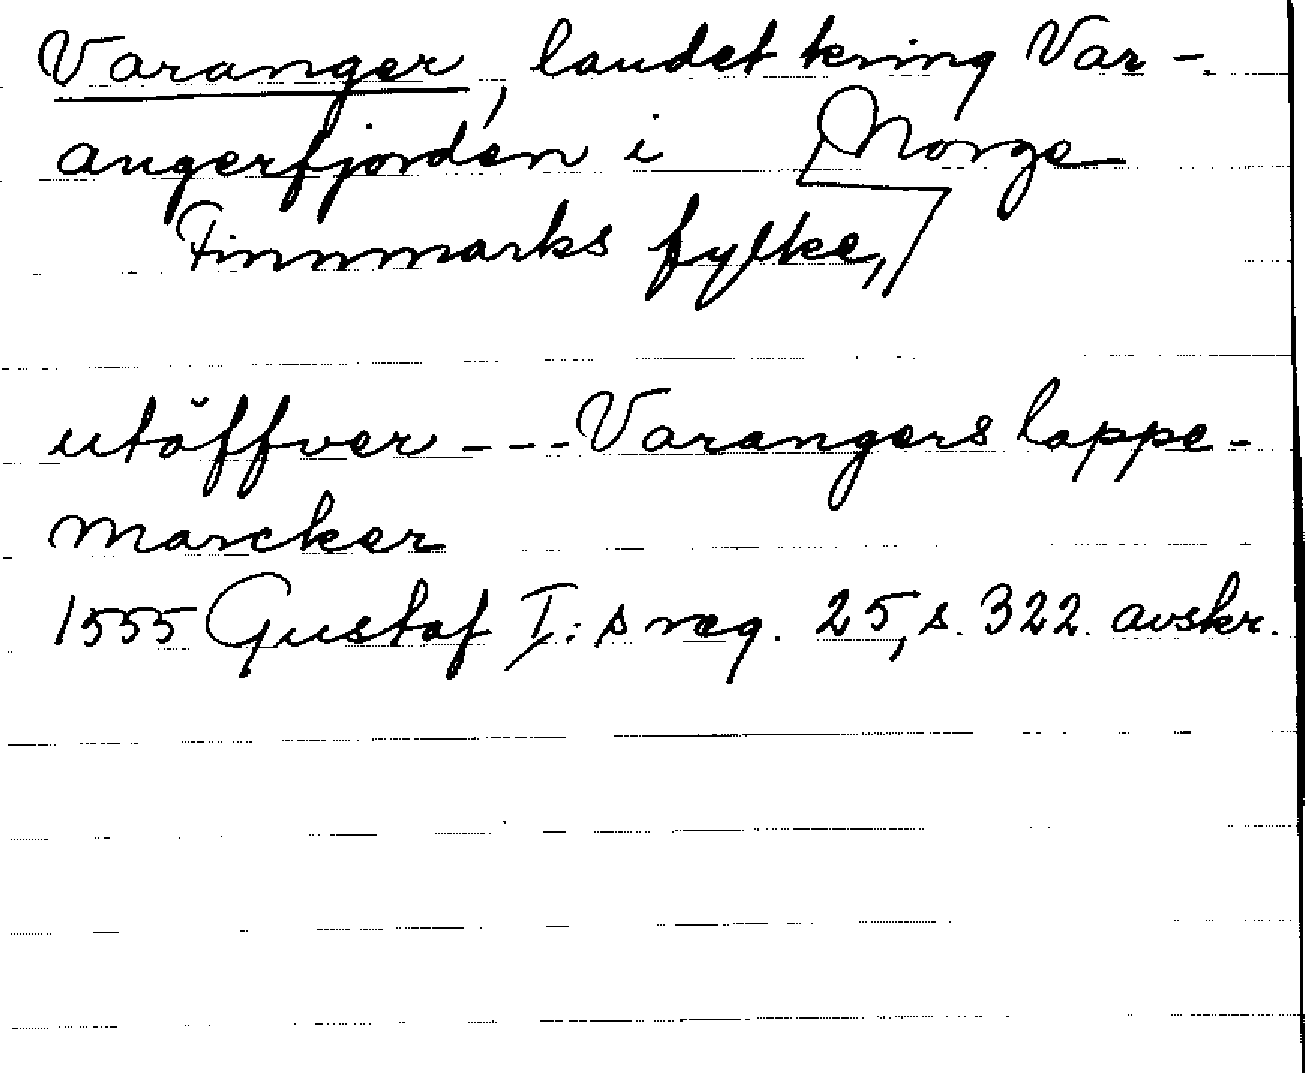 Varanger, landet kring Var-
angerfjorden i Norge
Finnmarks fylke,
utöffver --- Varangers lappe-
marcker
1555 Gustaf I:s reg. 25, s. 322. avskr.